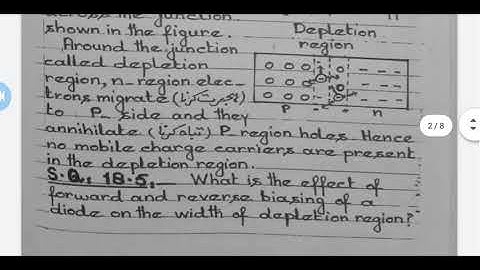 across the junction
shown in the figure.
Depletion
region
Around the junction
called depletion
region, n-region elec-
trons migrate (ہجرت کرنا)
to P- side and they
P
n
annihilate (تباہ کرنا) P region holes. Hence
no mobile charge carriers are present
in the depletion region.
S.Q.: 18.5. What is the effect of
forward and reverse biasing of a
diode on the width of depletion region?
2/8